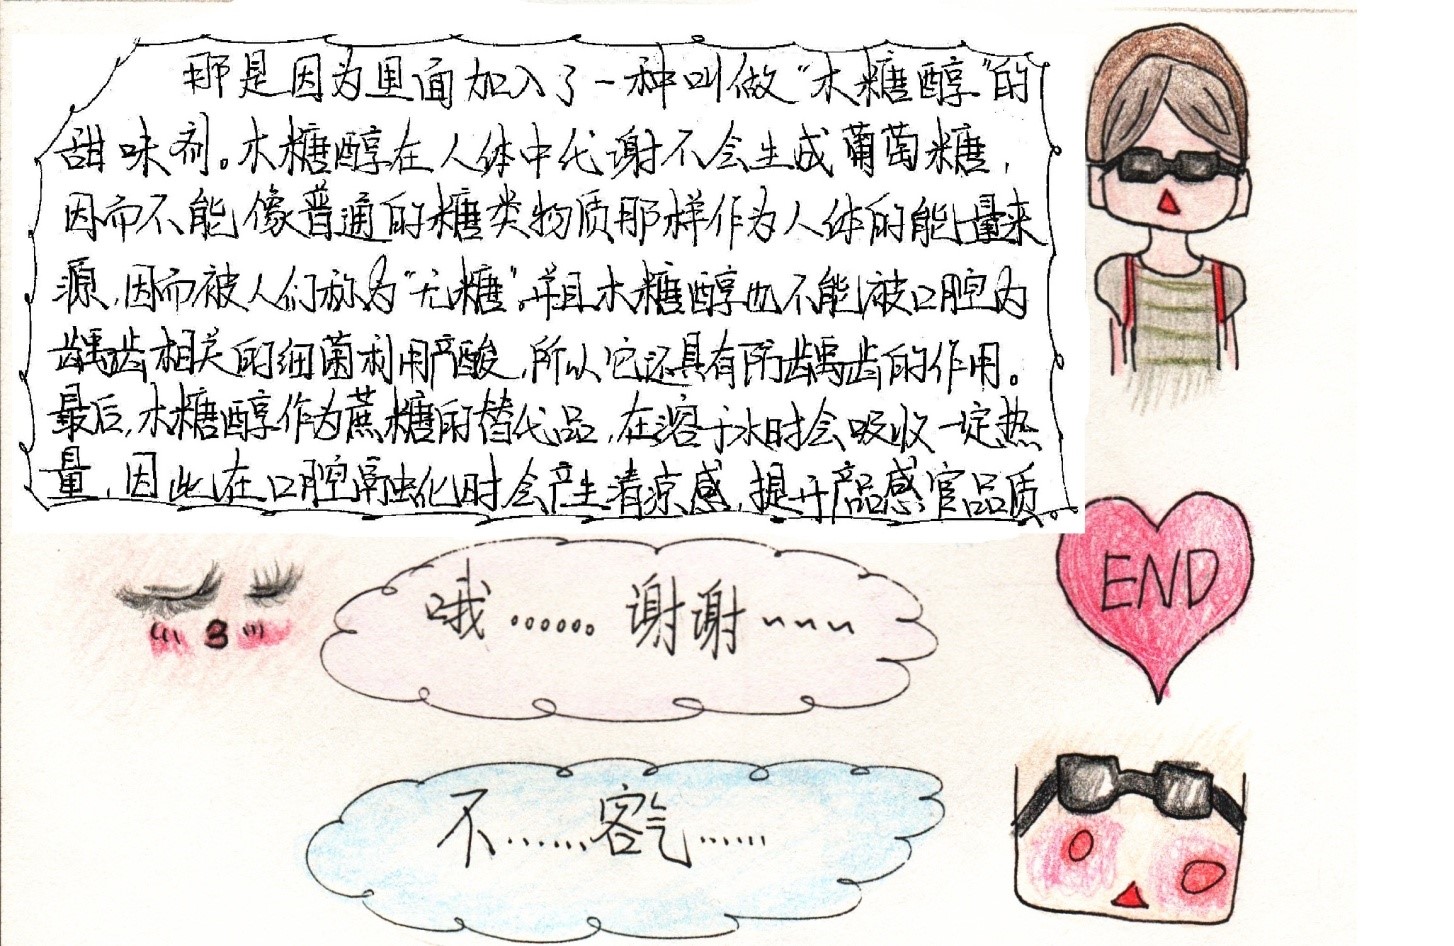 那是因为里面加入了一种叫做“木糖醇”的
甜味剂。木糖醇在人体中代谢不会生成葡萄糖，
因而不能像普通的糖类物质那样作为人体的能量来
源，因而被人们称为“无糖”。并且木糖醇也不能被口腔内
龋齿相关的细菌利用产酸，所以它还具有防龋齿的作用。
最后，木糖醇作为蔗糖的替代品，在溶于水时会吸收一定热
量，因此在口腔融化时会产生清凉感，提升产品感官品质。
END
哦……谢谢~~~
不……客气……